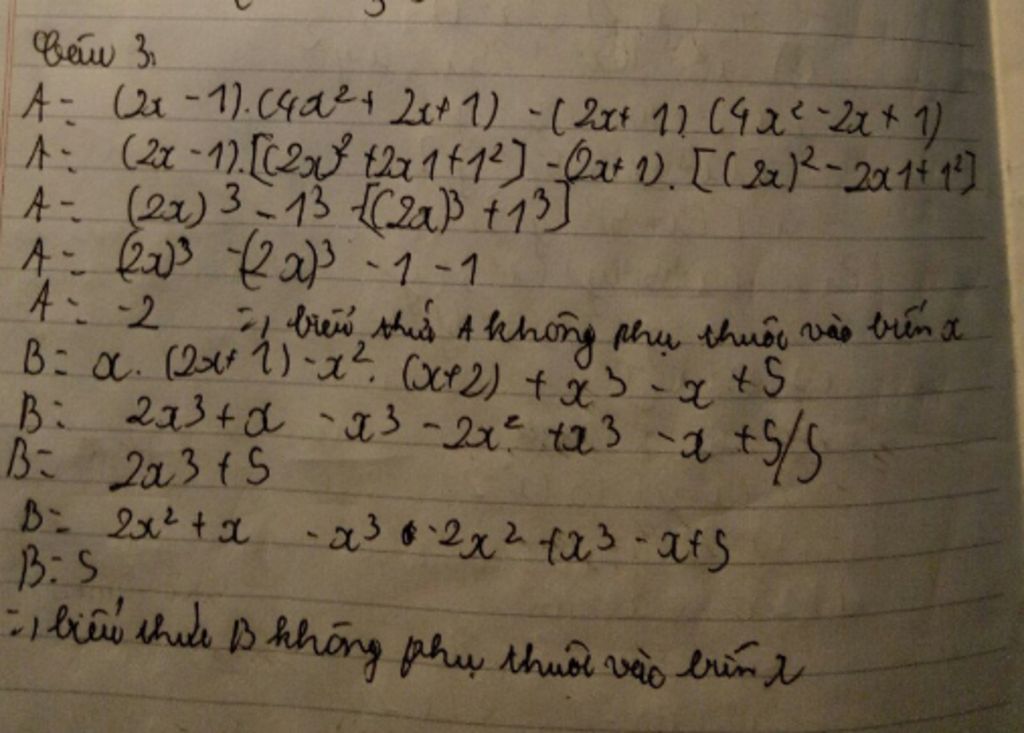 Câu 3,
A = (2x - 1).(4x² + 2x + 1) - (2x + 1).(4x² - 2x + 1)
A = (2x - 1).[(2x)² + 2x1 + 1²] - (2x + 1).[(2x)² - 2x1 + 1²]
A = (2x)³ - 1³ - [(2x)³ + 1³]
A = (2x)³ - (2x)³ - 1 - 1
A = -2 => biểu thức A không phụ thuộc vào biến x
B = x.(2x + 1) - x².(x + 2) + x³ - x + 5
B = 2x³ + x - x³ - 2x² + x³ - x + 5/5
B = 2x³ + 5
B = 2x² + x - x³ - 2x² + x³ - x + 5
B = 5
=> biểu thức B không phụ thuộc vào biến x